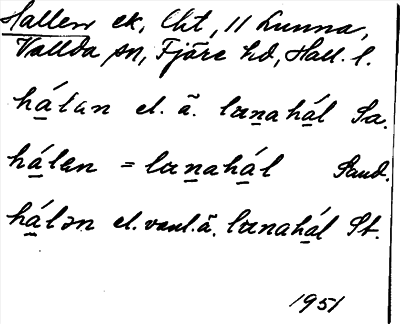 Hallen ek, Cht, 11 Lunna,
Vallda sn, Fjäre hd, Hall. l.
há̱lan el. ä. lɑna̱há̱l Sa.
há̱lan = lɑna̱há̱l Sand.
há̱lən el. vanl. ä. lɑna̱há̱l St.
1951